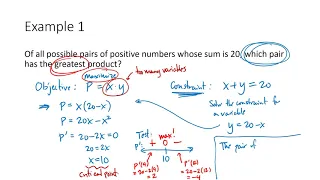 Example 1
Of all possible pairs of positive numbers whose sum is 20, which pair
has the greatest product?
maximize
to many variables
Objective: P = x·y
Constraint: x+y=20
⇒ P = x(20-x)
P = 20x - x²
P' = 20-2x = 0
20 = 2x
x = 10
critical point
Test:
max!
P': + 0 -
10
P'(9)
= 20-2(9)
= 2
P'(12)
= 20-2(12)
= -4
Solve the constraint for
a variable
y = 20-x
The pair of